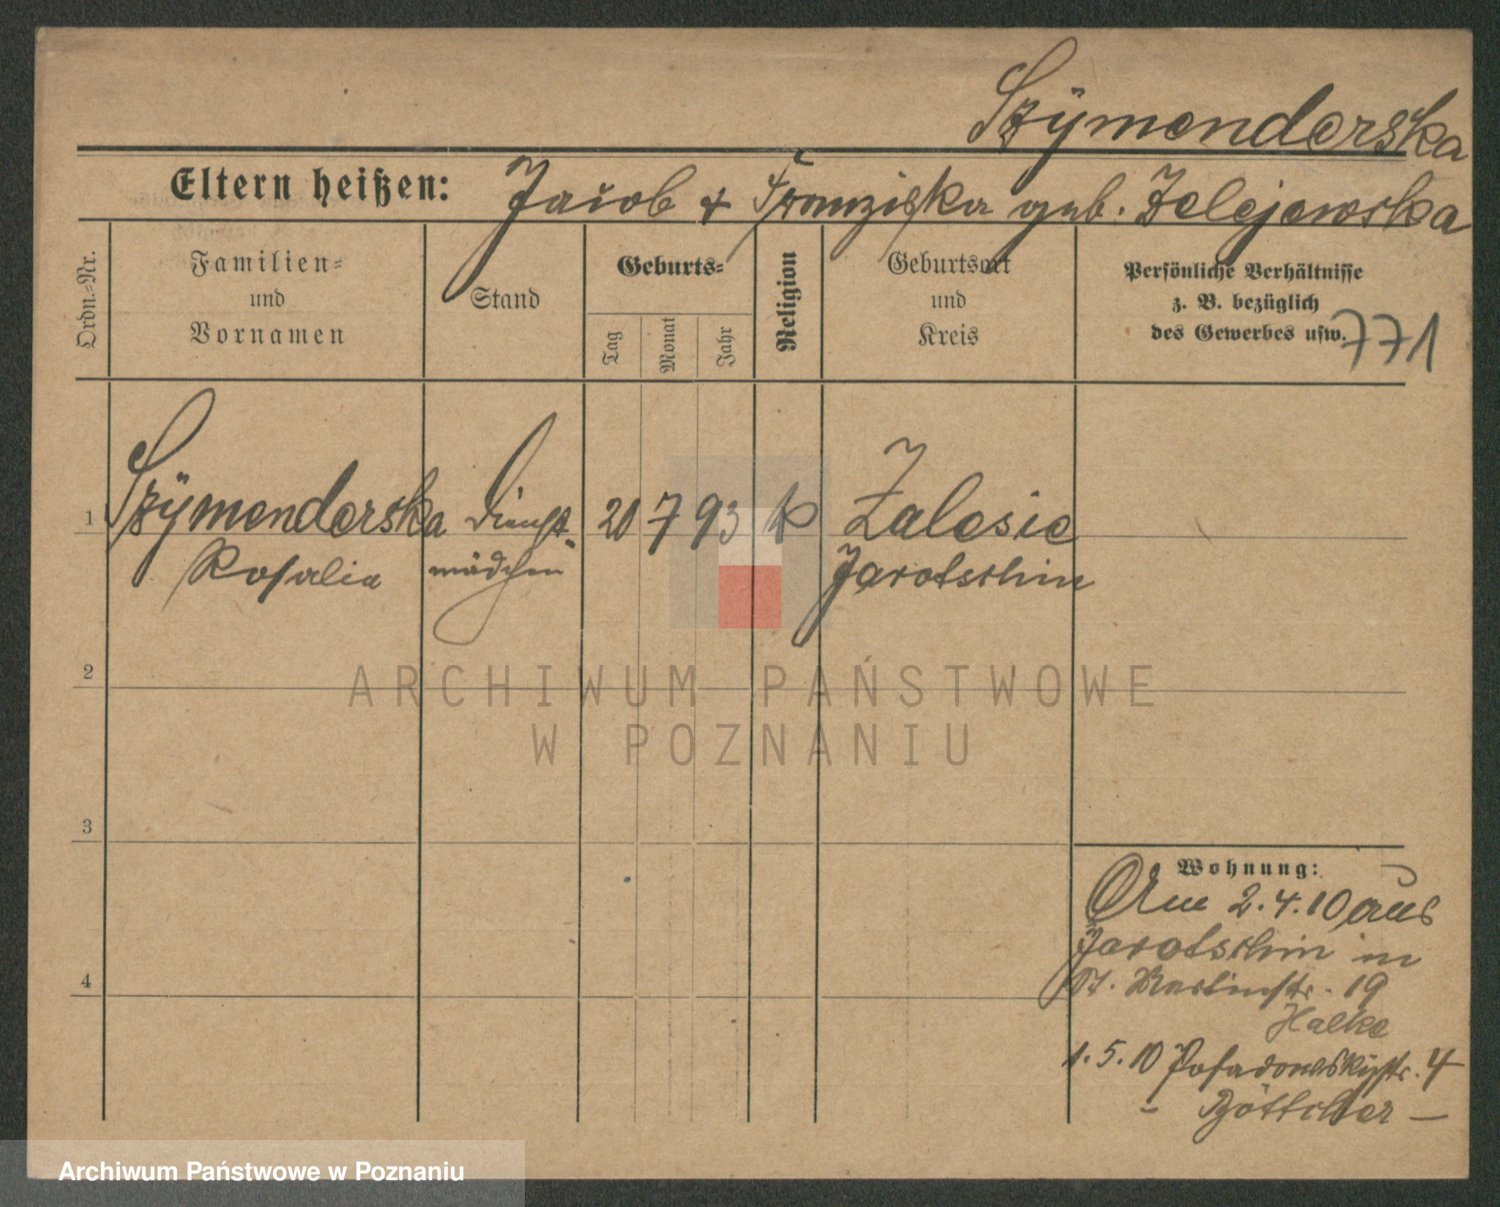 Szÿmenderska
Eltern heißen: Jakob + Franziska geb. Zelejewska
Ordn.-Nr.
Familien-
und
Vornamen
Stand
Geburts-
Tag
Monat
Jahr
Religion
Geburtsort
und
Kreis
Persönliche Verhältnisse
z. B. bezüglich
des Gewerbes usw.
771
1 Szÿmenderska Dienst- 20 7 93 k Zalesie
Rosalia mädchen Jarotschin
2
3
4
Wohnung:
Am 2.4.10 aus
Jarotschin in
St. Martinstr. 19
Halke
1.5.10 Posadowskystr. 4
- Böttcher -
ARCHIWUM PAŃSTWOWE
W POZNANIU
Archiwum Państwowe w Poznaniu